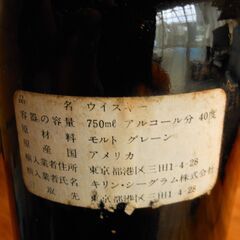 名 ウイスキー
容器の容量 750ml アルコール分 40度
原材料 モルト グレーン
原産国 アメリカ
輸入業者住所 東京都港区三田1-4-28
輸入業者氏名 キリン・シーグラム株式会社
引取先 東京都港区三田1-4-28